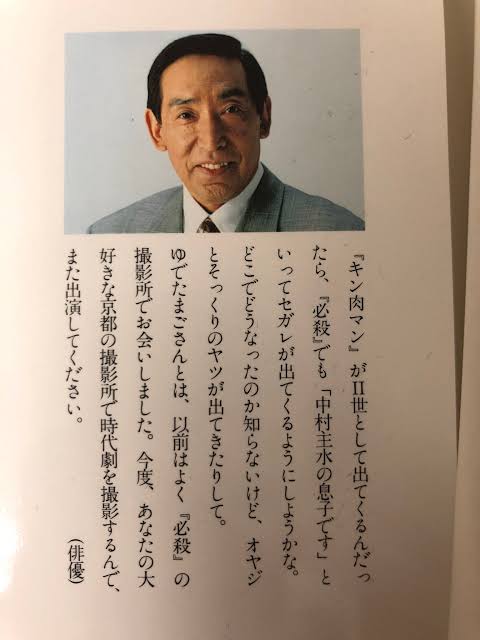 『キン肉マン』がⅡ世として出てくるんだっ
たら、『必殺』でも「中村主水の息子です」と
いってセガレが出てくるようにしようかな。
どこでどうなったのか知らないけど、オヤジ
とそっくりのヤツが出てきたりして。
ゆでたまごさんとは、以前はよく『必殺』の
撮影所でお会いしました。今度、あなたの大
好きな京都の撮影所で時代劇を撮影するんで、
また出演してください。
（俳優）